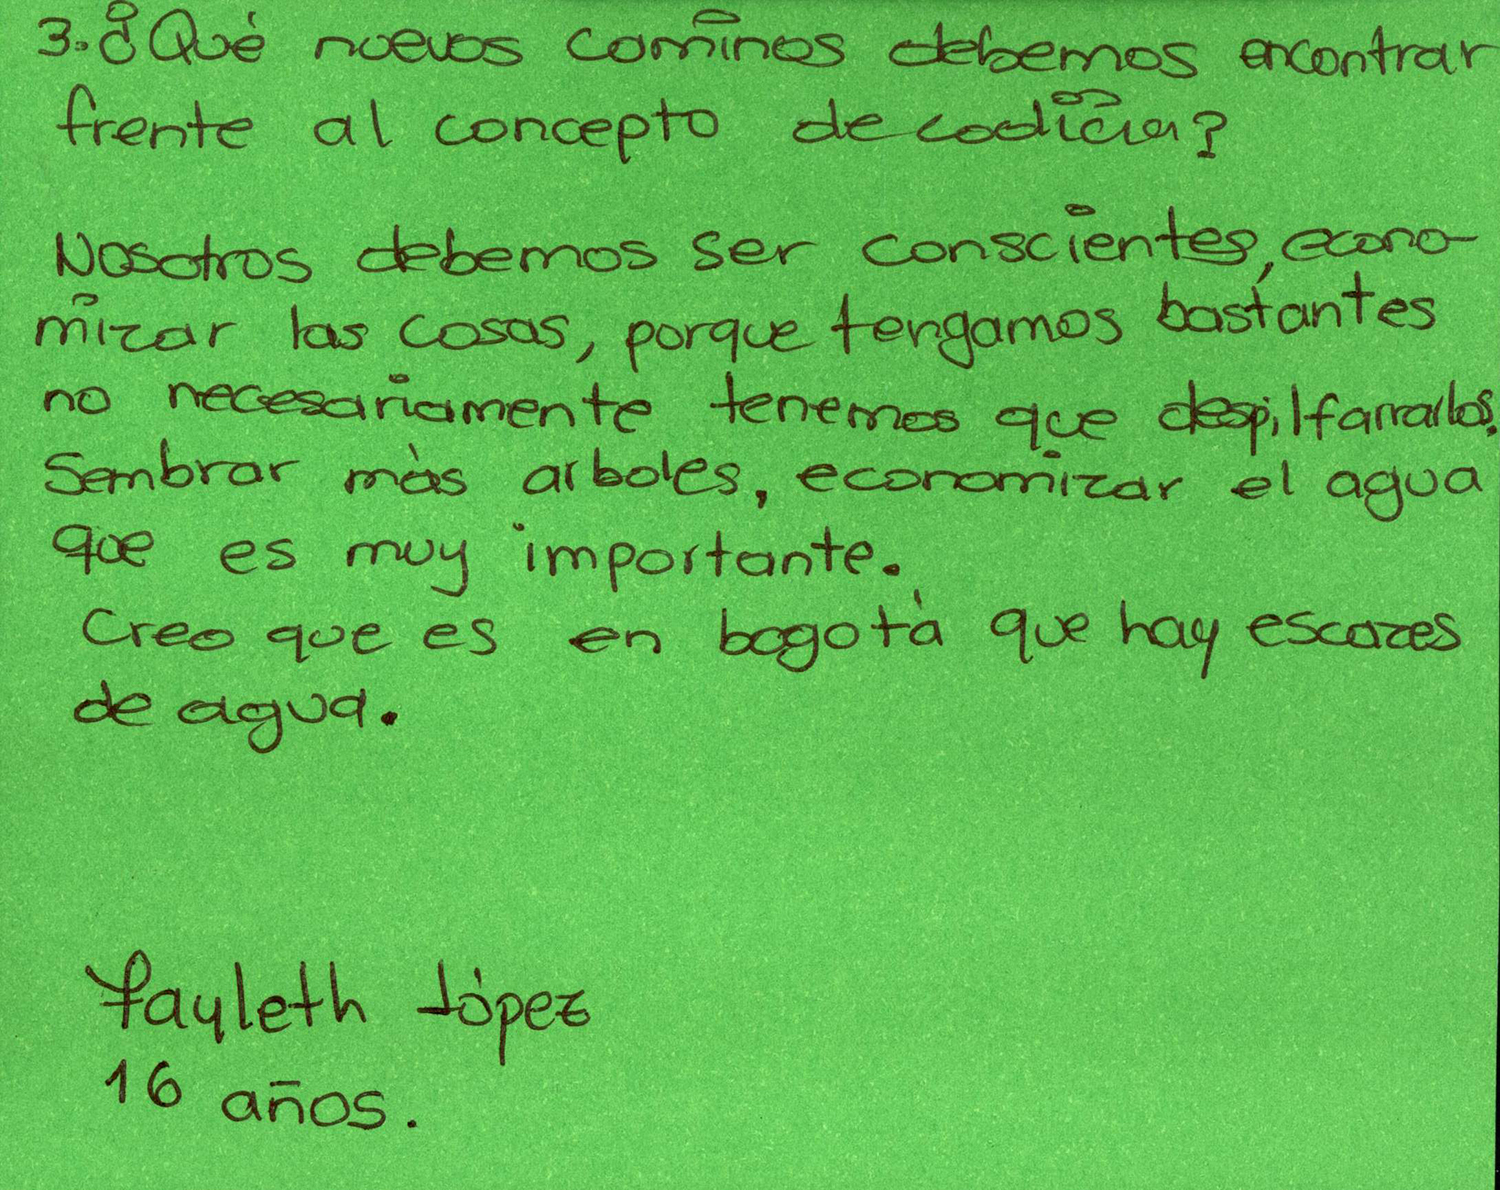 3. ¿Qué nuevos caminos debemos encontrar
frente al concepto de codicia?
Nosotros debemos ser conscientes, econo-
mizar las cosas, porque tengamos bastantes
no necesariamente tenemos que despilfarrarlos.
Sembrar más arboles, economizar el agua
que es muy importante.
Creo que es en bogotá que hay escazes
de agua.
Yayleth López
16 años.